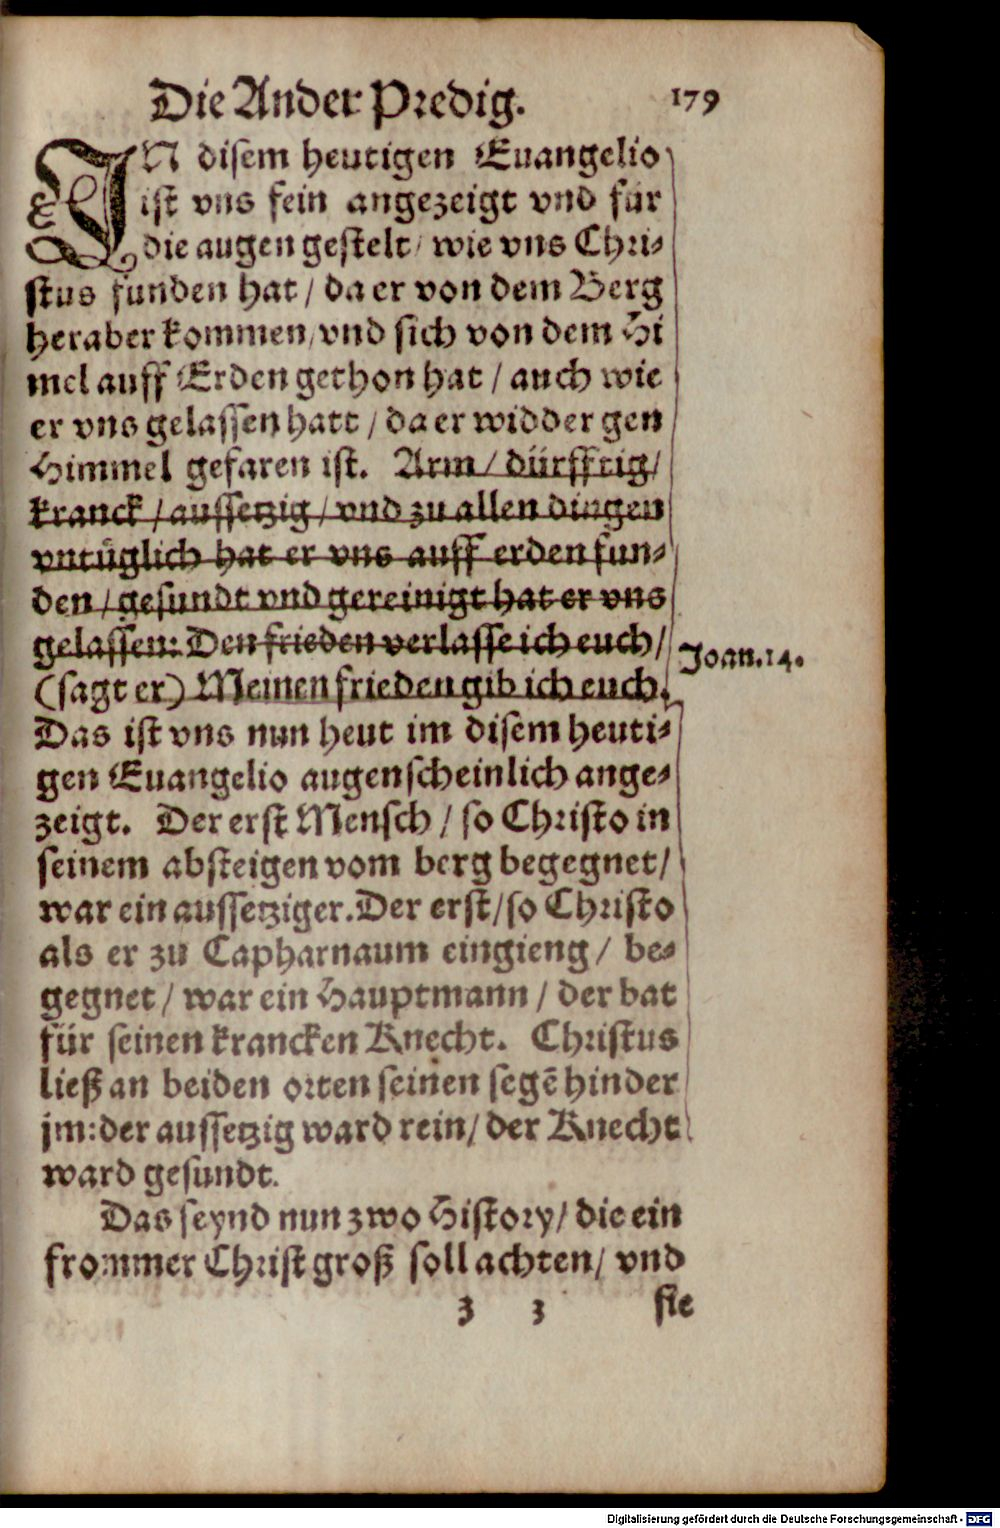 Die Ander Predig. 179
IN disem heutigen Euangelio
ist vns fein angezeigt vnd für
die augen gestelt / wie vns Chri-
stus funden hat / da er von dem Berg
heraber kommen / vnd sich von dem Hi
mel auff Erden gethon hat / auch wie
er vns gelassen hatt / da er widder gen
Himmel gefaren ist. Arm / dürfftig /
kranck / aussetzig / vnd zu allen dingen
vntüglich hat er vns auff erden fun-
den / gesundt vnd gereinigt hat er vns
gelassen: Den frieden verlasse ich euch /
Joan. 14.
(sagt er) Meinen frieden gib ich euch.
Das ist vns nun heut im disem heuti-
gen Euangelio augenscheinlich ange-
zeigt. Der erst Mensch / so Christo in
seinem absteigen vom berg begegnet /
war ein aussetziger. Der erst / so Christo
als er zu Capharnaum eingieng / be-
gegnet / war ein Hauptmann / der bat
für seinen krancken Knecht. Christus
ließ an beiden orten seinen segē hinder
jm: der aussetzig ward rein / der Knecht
ward gesundt.
Das seynd nun zwo History / die ein
frommer Christ groß soll achten / vnd
z 3 sie
Digitalisierung gefördert durch die Deutsche Forschungsgemeinschaft - DFG